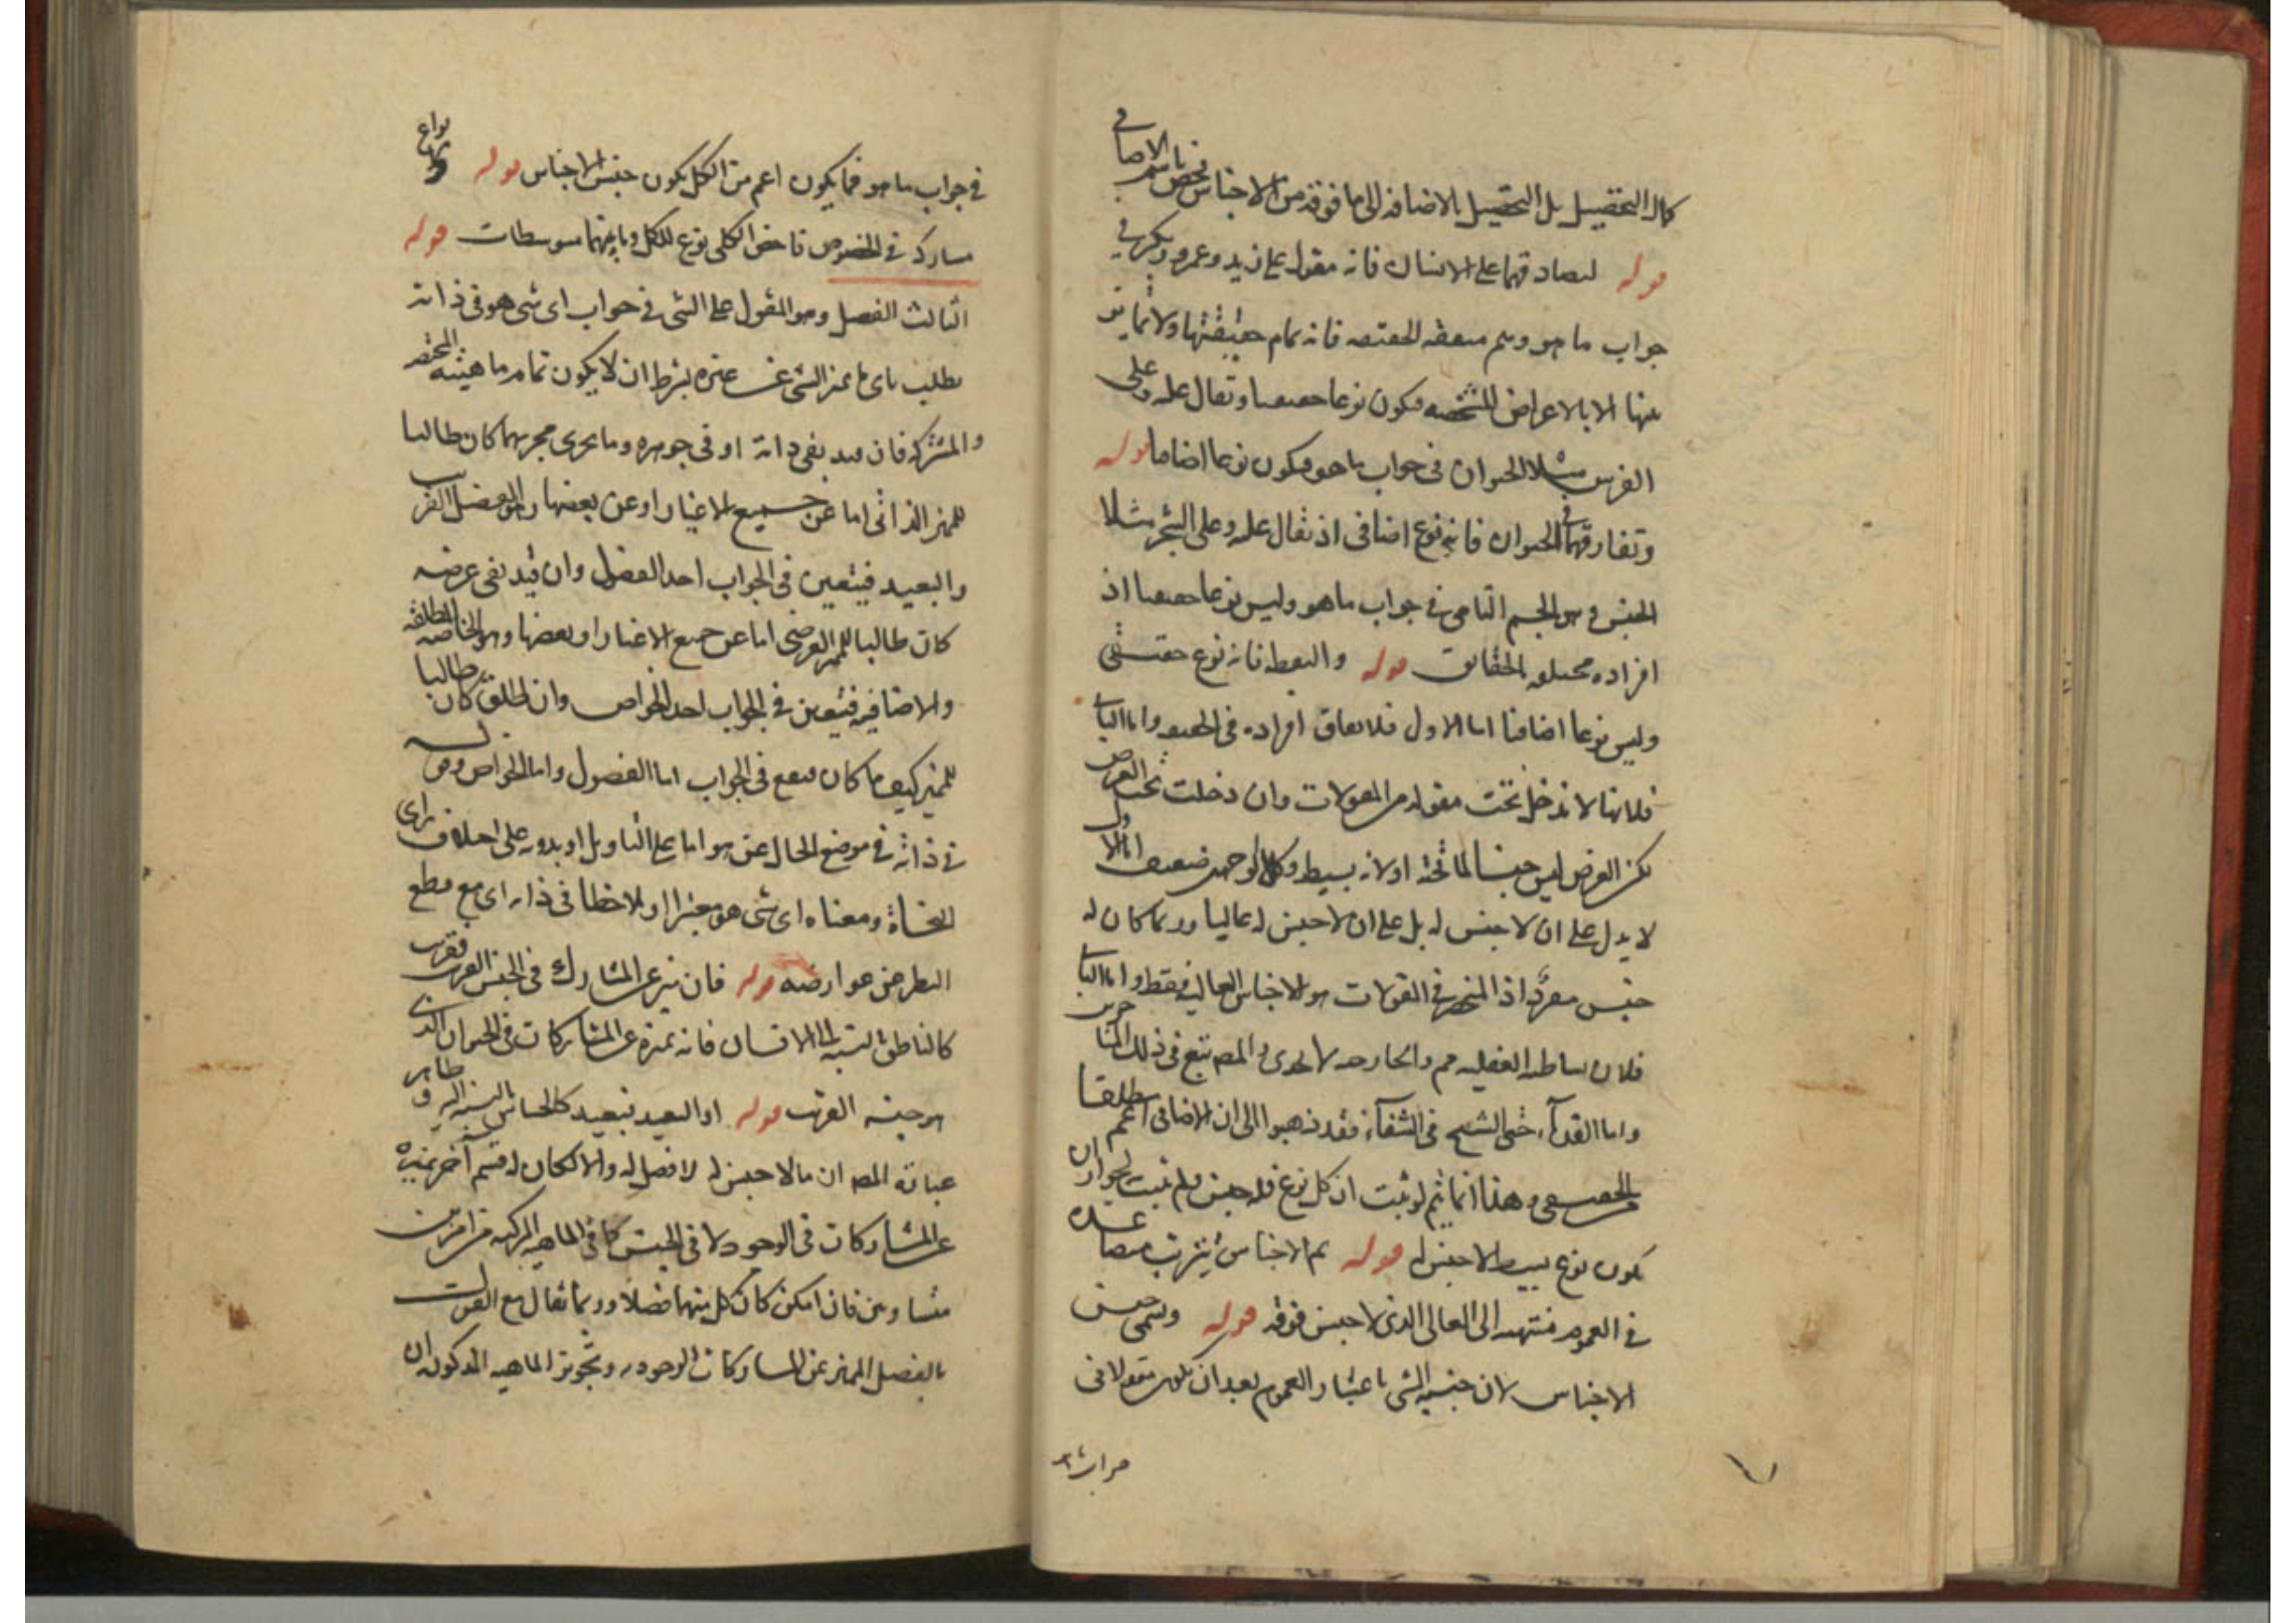 كمال التحصيل بل التحصيل بالاضافة الى ما فوقه من الاجناس فخص باسم الاضافي
قوله لتصادقهما على الانسان فانه مقول على زيد وعمرو وبكر في
جواب ما هو وهم متفقه الحقيقه فانه تمام حقيقتها ولا تمايز
بينها الا بالاعراض المشخصه فيكون نوعا حقيقيا ويقال عليه وعلى
الفرس مثلا الحيوان في جواب ما هو فيكون نوعا اضافيا قوله
وتفارقهما في الحيوان فانه نوع اضافي اذ يقال عليه وعلى الشجر مثلا
الجنس وهو الجسم النامي في جواب ما هو وليس نوعا حقيقيا اذ
افراده مختلفه الحقائق قوله والنقطه فانه نوع حقيقي
وليس نوعا اضافيا اما الاول فلاتفاق افراده في الحقيقه واما الثاني
فلانها لا تدخل تحت مقوله من المقولات وان دخلت تحت العرض
لكن العرض ليس جنسا لما تحته او لانه بسيط وكلا الوجهين ضعيف اما الاول
لا يدل على ان لا جنس له بل على ان لا جنس له عاليا وربما كان له
جنس مفرد اذ المنحصر في المقولات هو الاجناس العاليه فقط واما الثاني
فلان بساطه العقليه مم والخارجيه لا تجدي والمص تبع في ذلك المتاخرين
واما القدماء حتى الشيخ في الشفاء فقد ذهبوا الى ان الاضافي اعم مطلقا
من الحقيقي وهذا انما يتم لو ثبت ان كل نوع فله جنس ولم يثبت لجواز ان
يكون نوع بسيط لا جنس له قوله ثم الاجناس يترتب متصاعده
في العموم منتهيه الى العالي الذي لا جنس فوقه قوله ويسمى جنس
الاجناس لان جنسيه الشي باعتبار العموم بعد ان يكون مقولا في
في جواب ما هو فما يكون اعم من الكل يكون جنس الاجناس قوله انواع
قاخص الكلي نوع للكل وما بينهما متوسطات قوله
الثالث الفصل وهو المقول على الشي في جواب اي شي هو في ذاته
يطلب باي ما يميز الشي عن غيره بشرط ان لا يكون تمام ماهيته المختصه
والمشتركه فان قيد بفي ذاته او في جوهره وما يجري مجريهما كان طالبا
للمميز الذاتي اما عن جميع الاغيار او عن بعضها وهو الفصل القريب
والبعيد فيتعين في الجواب احد الفصول وان قيد بفي عرضه
كان طالبا للمميز العرضي اما عن جميع الاغيار او بعضها وهو الخاصه المطلقه
والاضافيه فيتعين في الجواب احد الخواص وان اطلق كان طالبا
للمميز كيف ما كان فيقع في الجواب اما الفصول واما الخواص وقوله
في ذاته في موضع الحال عن هو اما على التاويل او بدونه على اختلاف راي
النحاة ومعناه اي شي هو معتبرا او ملاحظا في ذاته اي مع قطع
النظر عن عوارضه قوله فان ميز عن المشارك في الجنس القريب فقريب
كالناطق بالنسبه الى الانسان فانه يميزه عن المشاركات في الحيوان الذي
هو جنسه القريب قوله او البعيد فبعيد كالحساس بالنسبه اليه وظاهر
عبارة المص ان ما لا جنس له لا فصل له والا لكان له قسم آخر يميزه
عن المشاركات في الوجود لا في الجنس كما في الماهيه المركبه من امرين
متساويين فان امكن كان كل منهما فصلا وربما يقال مع القريب
بالفصل المميز عن المشاركات الوجوديه وتجويز الماهيه المذكوره ان